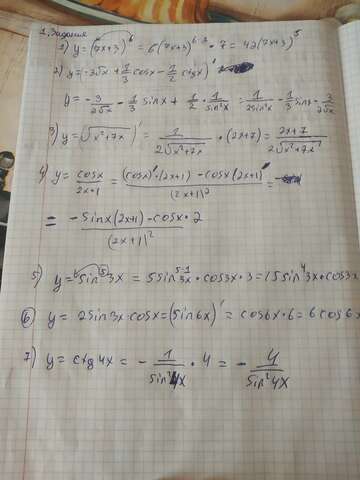 1. Задания
1) y=(7x+3)^6 = 6(7x+3)^{6-1} · 7 = 42(7x+3)^5
2) y=(-3√x + 1/3 cosx - 1/2 ctgx)'
y = -3/(2√x) - 1/3 sinx + 1/2 · 1/sin²x = 1/(2sin²x) - 1/3 sinx - 3/(2√x)
3) y=√(x²+7x))' = 1/(2√(x²+7x)) · (2x+7) = (2x+7)/(2√(x²+7x))
4) y = cosx/(2x+1) = ((cosx)'·(2x+1) - cosx(2x+1)')/(2x+1)² =
= (-sinx(2x+1) - cosx·2)/(2x+1)²
5) y = sin^5 3x = 5sin^{5-1} 3x · cos3x · 3 = 15sin^4 3x · cos3x
6) y = 2sin3x·cosx = (sin6x)' = cos6x·6 = 6cos6x
7) y = ctg4x = - 1/sin²4x · 4 = - 4/sin²4x